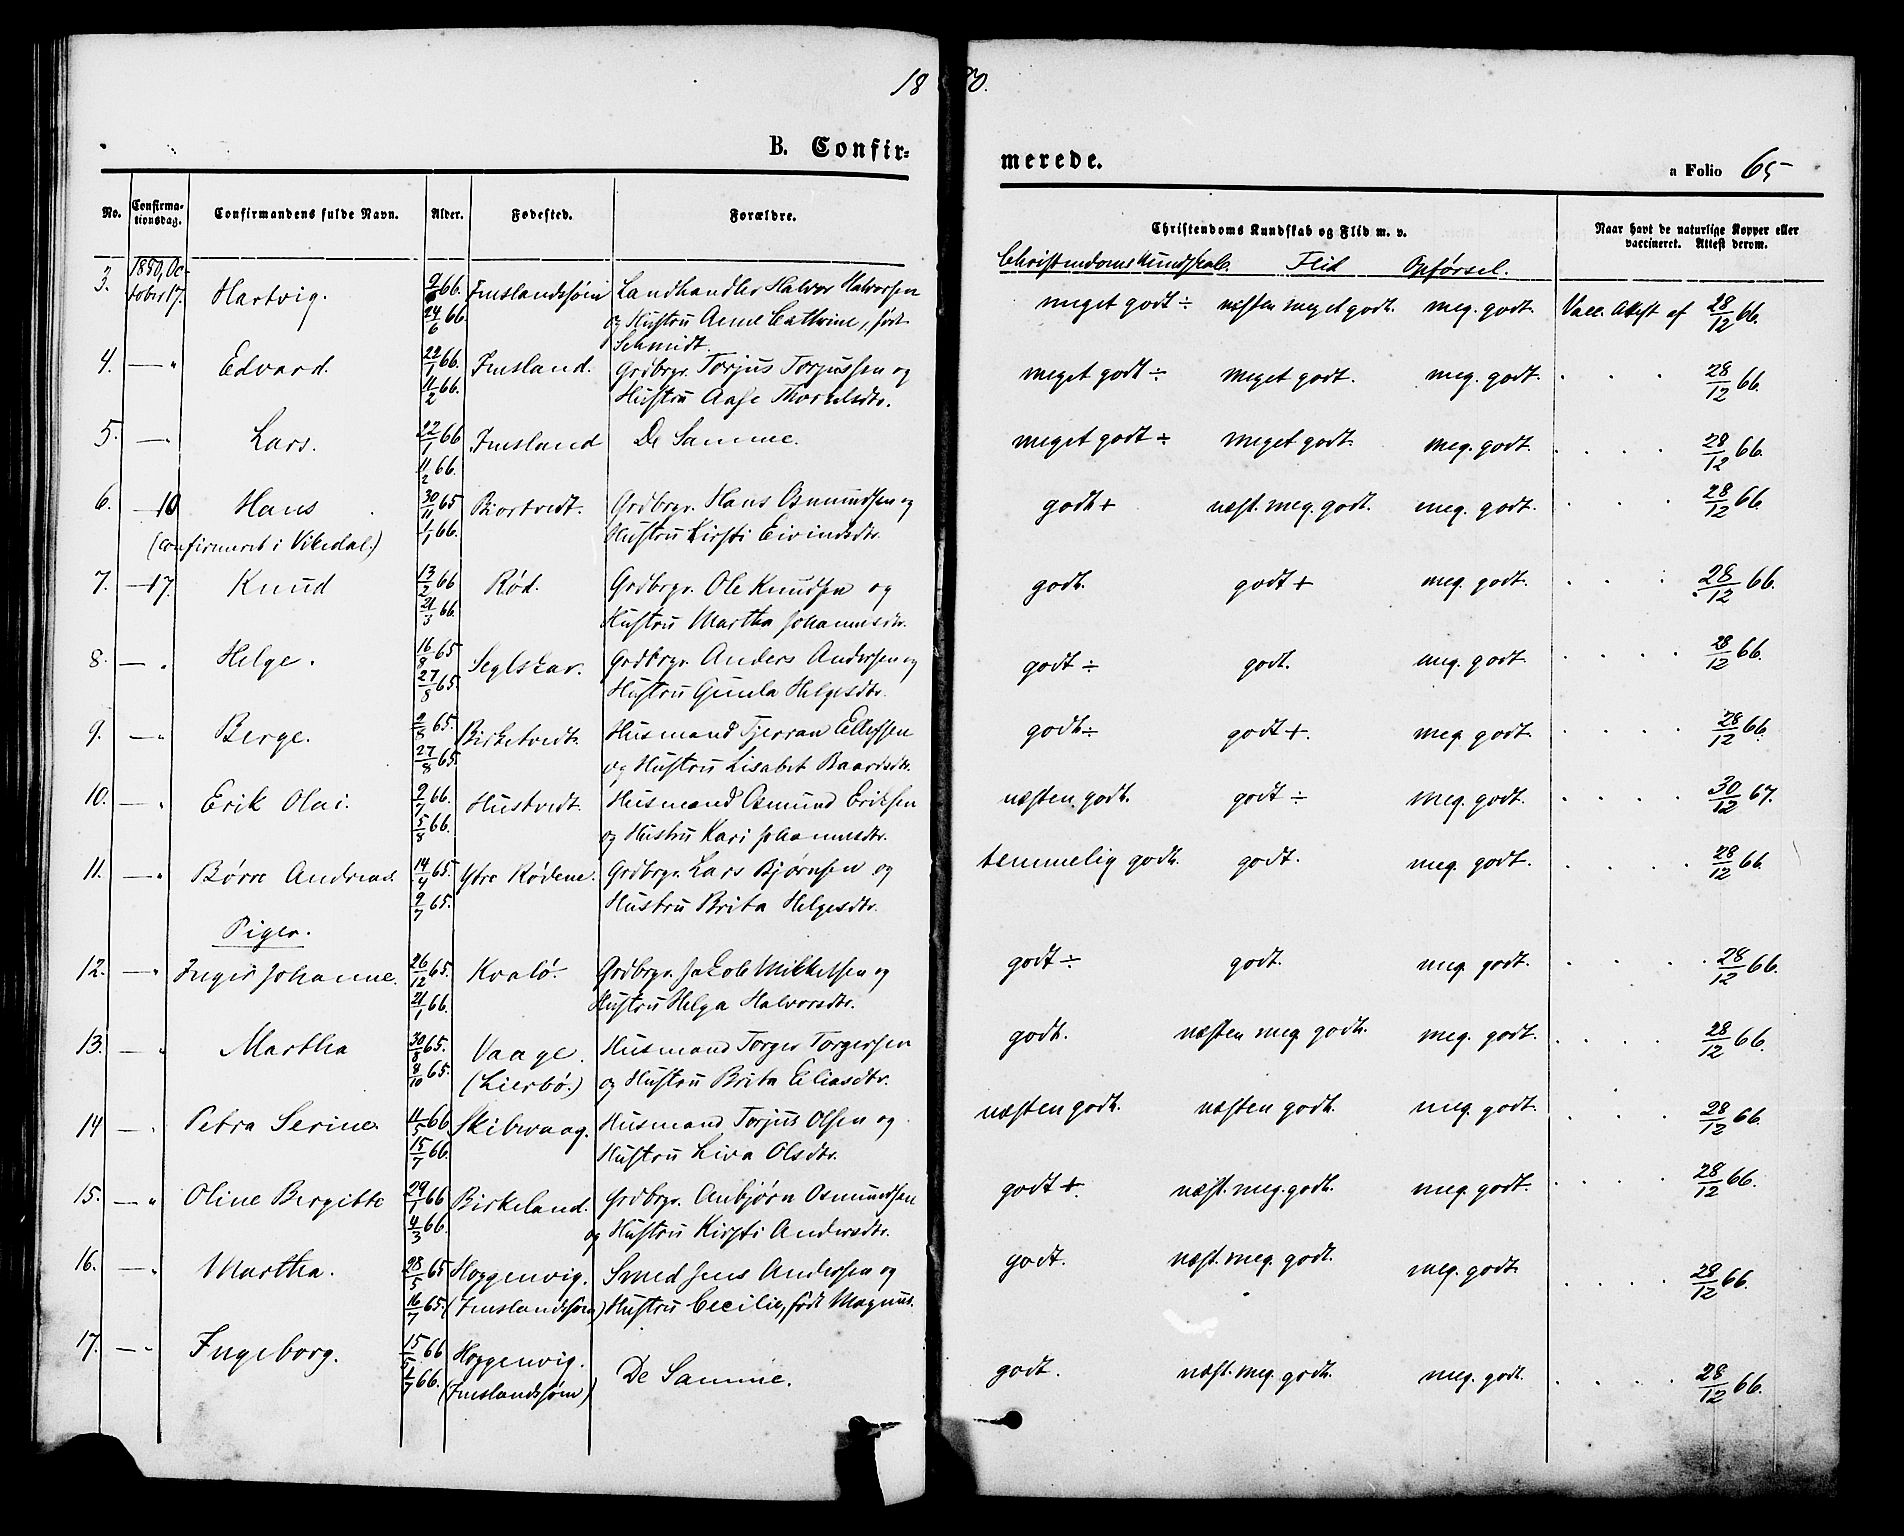 18 80.
B. Confir-
merede.
a Folio 65
No. Confirma-tionsdag. Confirmandens fulde Navn. Alder. Fødested. Forældre. Christendoms Kundskab og Flid m. v. Naar havt de naturlige Kopper eller vaccineret. Attest derom.
Christendomskundskab. Flid Opførsel.
3. 1880, Oc- Hartvig. 66. Imslandssøen Landhandler Halvor Halvorsen meget godt ÷ næsten meget godt. meg. godt. Vacc. Attest af 28/12 66.
tober 17. 24/6 66. og Hustru Anne Cathrine, født
Schmidt.
4. — " Edvard. 22/1 66. Imsland. Grdbrgr. Torjus Torjussen og meget godt ÷ meget godt. meg. godt. . . . 28/12 66.
11/2 66. Hustru Aase Thorkelsdtr.
5. — " Lars. 22/1 66 Imsland De Samme. meget godt ÷ meget godt. meg. godt. . . . . 28/12 66.
11/2 66.
6. — 10 Hans 30/11 65 Bjortvedt. Grdbrgr. Hans Osmundsen og godt + næst. meg. godt. meg. godt. . . . 28/12 66
(confirmeret i Vikedal.) 1/1 66. Hustru Kirsti Eivindsdtr.
7. — 17. Knud 13/2 66 Rød. Grdbrgr. Ole Knudsen og godt. godt + meg. godt. . . . 28/12 66.
21/3 66. Hustru Martha Johannesdtr.
8. — " Helge. 16/8 65 Seglskar. Grdbrgr. Anders Andersen og godt ÷ godt. meg. godt. . . . . 28/12 66.
27/8 65. Hustru Gunla Helgesdtr.
9. — " Berge. 2/8 65. Birketvedt. Husmand Tjerran Ellefsen godt ÷ godt +. meg. godt. . . . . 28/12 66.
27/8 65. og Hustru Lisabet Baardsdtr.
10. — " Erik Olai. 9/7 66. Hustvedt. Husmand Osmund Eriksen næsten godt. godt ÷ meg. godt. . . . . 30/12 67.
5/8 66. og Hustru Kari Johannesdtr.
11. — " Børre Andreas. 14/4 65. Ytre Rødene. Grdbrgr. Lars Bjørnsen og temmelig godt. godt. meg. godt. . . . . 28/12 66
9/7 65. Hustru Brita Helgesdtr.
Piger.
12. — " Inger Johanne. 26/12 65. Kvalø. Grdbrgr. Jakob Mikkelsen og godt ÷ godt. meg. godt. . . . . 28/12 66.
21/1 66. Hustru Helga Halvorsdtr.
13. — " Martha 30/8 65. Vaage. Husmand Torger Torgersen godt. næsten meg. godt. meg. godt. . . . . 28/12 66.
8/10 65. (Lierbø.) og Hustru Brita Eliasdtr.
14 — " Petra Serine 11/5 66. Skibevaag. Husmand Torjus Olsen og næsten godt. næsten godt. meg. godt. . . . 28/12 66.
15/7 66. Hustru Liva Olsdtr.
15. — " Oline Bergitte 29/1 66 Birkeland. Grdbrgr. Anbjørn Osmundsen godt +. næst. meg. godt. meg. godt. . . . . 28/12 66.
4/3 66. og Hustru Kirsti Andersdtr.
16. — " Martha. 28/5 65 Hoggenvig. Smed Jens Andersen og godt. næst. meg. godt. meg. godt. . . . . 28/12 66.
16/7 65. (Imslandssøen) Hustru Cecilie, født Magnus.
17. — " Ingeborg. 15/5 66 Hoggenvig. De Samme. godt. næst. meg. godt. meg. godt. . . . . 28/12 66.
1/7 66. (Imslandssøen)